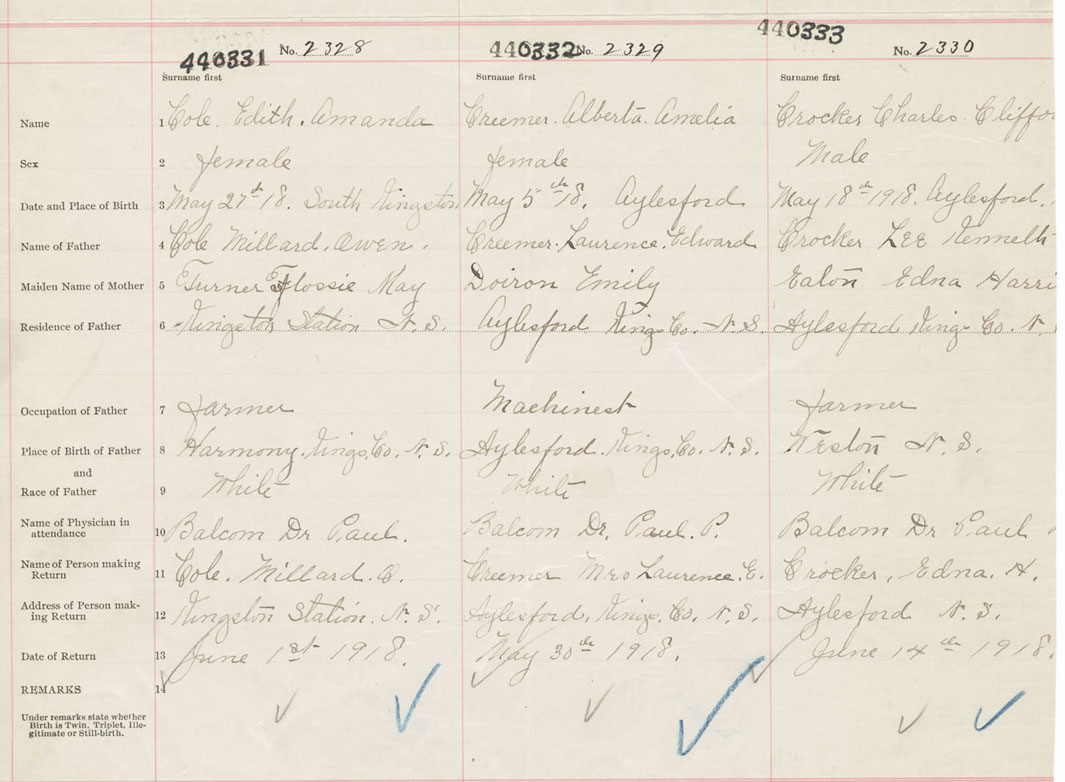 440331 No. 2328 440332 No. 2329 440333 No. 2330
Surname first Surname first Surname first
Name 1 Cole. Edith. Amanda Creemer. Alberta. Amelia Crocker Charles Cliffor
Sex 2 female female Male
Date and Place of Birth 3 May 27th 18. South Kingston May 5th 18. Aylesford May 18th 1918. Aylesford.
Name of Father 4 Cole Millard. Owen. Creemer. Laurence. Edward Crocker Lee Kenneth
Maiden Name of Mother 5 Turner Flossie May Doiron Emily Eaton Edna Harri
Residence of Father 6 Kingston Station N. S. Aylesford King. Co. N. S. Aylesford King. Co. N.
Occupation of Father 7 farmer Machinest farmer
Place of Birth of Father 8 Harmony. Kings. Co. N. S. Aylesford. Kings. Co. N. S. Weston N. S.
and
Race of Father 9 White White White
Name of Physician in
attendance 10 Balcom Dr Paul. Balcom Dr. Paul. P. Balcom Dr Paul
Name of Person making
Return 11 Cole. Millard. O. Creemer Mrs Laurence. E. Crocker, Edna. H.
Address of Person mak-
ing Return 12 Kingston Station. N. S. Aylesford. Kings. Co. N. S. Aylesford N. S.
Date of Return 13 June 1st 1918. May 30th 1918. June 14th 1918.
REMARKS 14
Under remarks state whether
Birth is Twin, Triplet, Ille-
gitimate or Still-birth.